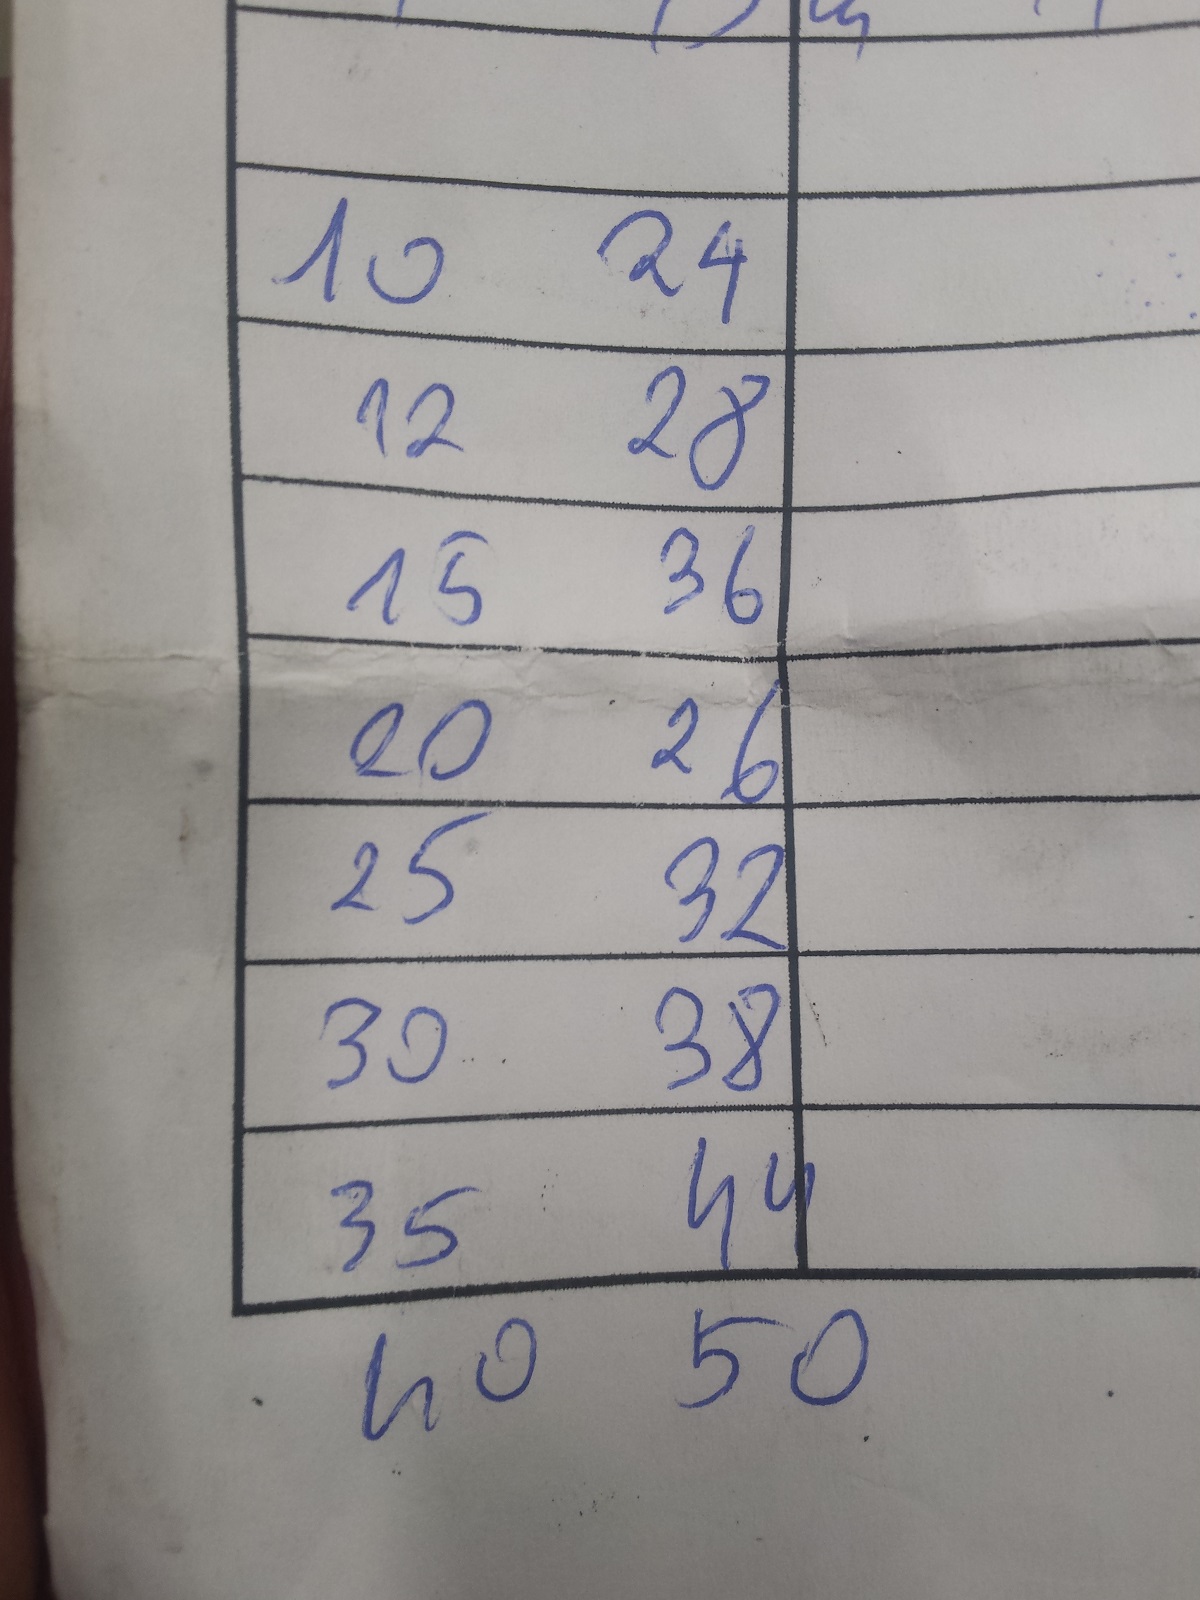 10 24
12 28
15 36
20 26
25 32
30 38
35 44
40 50